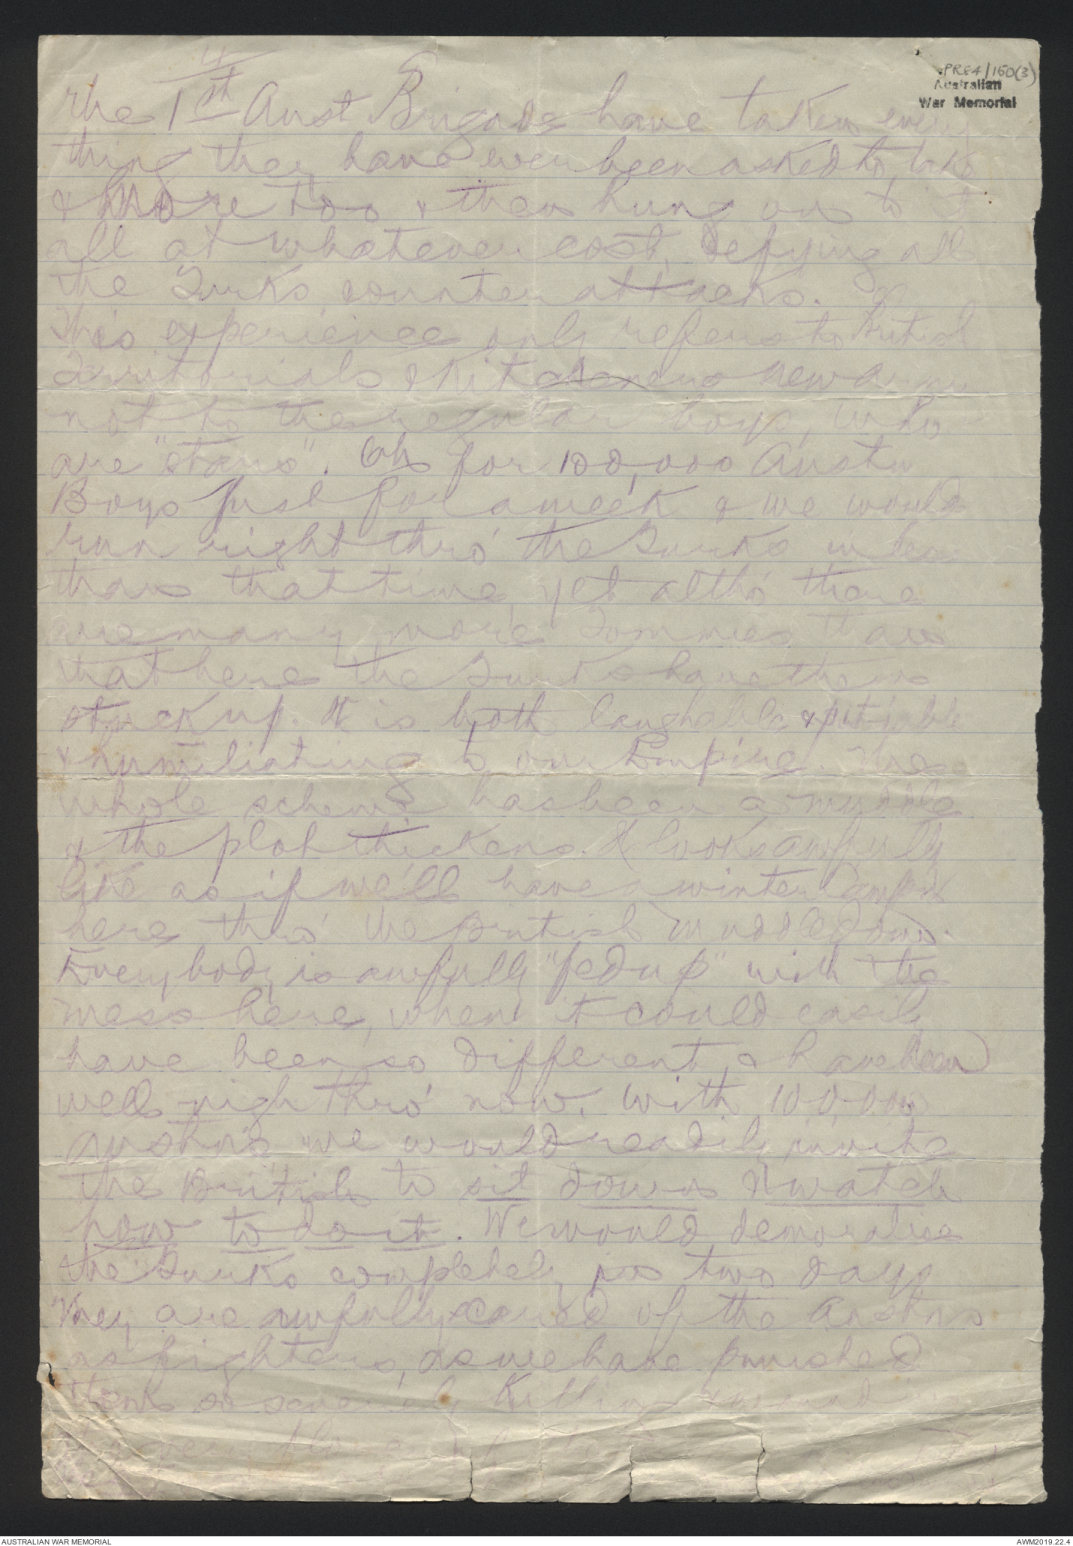 4
PR84/150(3)
Australian
War Memorial
The 1st Aust Brigade have taken every
thing they have ever been asked to take
& more too & then hung on to it
all at whatever cost, defying all
the Turks counter attacks.
This experience only refers to British
Territorials & Kitcheners new army
not to the regular boys, who
are "stars". Oh for 100,000 Austn
Boys just for a week & we would
run right thro' the Turks in less
than that time, yet altho' there
are many more Tommies than
that here the Turks have them
stuck up. It is both laughable & pitiable
& humiliating to our Empire. The
whole scheme has been a muddle
& the plot thickens. It looks awfully
like as if we'll have a winter Camp
here thro' the British muddledom.
Everybody is awfully "fed up" with the
mess here, when it could easily
have been so different, & have been
well nigh thro' now. With 100,000
Austn's we would readily invite
the British to sit down & watch
how to do it. We would demoralise
the Turks completely in two days
They are awfully scared of the Austns
as fighters, as we have punished
them so severely killing
AUSTRALIAN WAR MEMORIAL
AWM2019.22.4